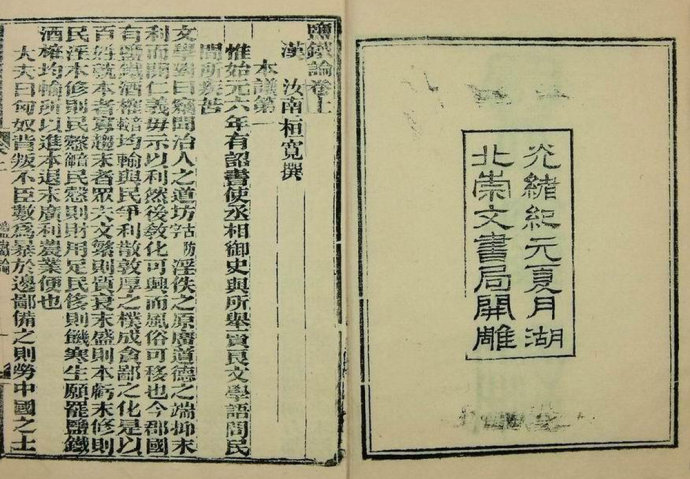 光緒紀元夏月湖
北崇文書局開雕
鹽鐵論卷上
漢 汝南桓寬撰
本議第一
惟始元六年有詔書使丞相御史與所舉賢良文學語問民
間所疾苦
文學對曰竊聞治人之道坊古防淫佚之原廣道德之端抑末
利而開仁義毋示以利然後敎化可興而風俗可移也今郡國
有鹽鐵酒榷均輸與民爭利散敦厚之樸成貪鄙之化是以
百姓就本者寡趨末者眾夫文繁則質衰末盛則本虧末修則
民淫本修則民慤民慤則財用足民侈則饑寒生願罷鹽鐵
酒榷均輸所以進本退末廣利農業便也
大夫曰匈奴背叛不臣數爲暴於邊鄙備之則勞中國之士